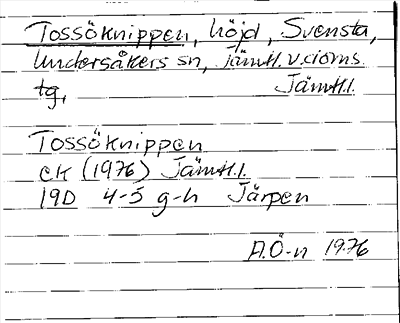 Tossöknippen, höjd, Svensta,
Undersåkers sn, Jämtl. v. doms.
tg, Jämtl.l.
Tossöknippen
ek (1976) Jämtl.l.
19D 4-5 g-h Järpen
A.Ö-n 1976